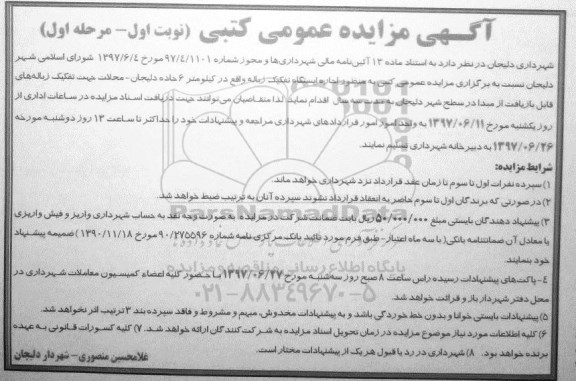 آگهی مزایده عمومی کتبی (نوبت اول- مرحله اول)
شهرداری دلیجان در نظر دارد به استناد ماده ۱۳ آئین‌نامه مالی شهرداری‌ها و مجوز شماره ۹۷/۴/۱۱۰۱ مورخ ۱۳۹۷/۶/۴ شورای اسلامی شهر
دلیجان نسبت به برگزاری مزایده عمومی کتبی به منظور اجاره ایستگاه تفکیک زباله واقع در کیلومتر ۶ جاده دلیجان - محلات جهت تفکیک زباله‌های
قابل بازیافت از مبدا در سطح شهر دلیجان به مدت سال اقدام نماید. لذا متقاضیان می‌توانند جهت دریافت اسناد مزایده در ساعات اداری از
روز یکشنبه مورخ ۱۳۹۷/۰۶/۱۱ به واحد امور قراردادهای شهرداری مراجعه و پیشنهادات خود را حداکثر تا ساعت ۱۳ روز دوشنبه مورخه
۱۳۹۷/۰۶/۲۶ به دبیرخانه شهرداری تسلیم نمایند.
شرایط مزایده:
۱) سپرده نفرات اول تا سوم تا زمان عقد قرارداد نزد شهرداری خواهد ماند.
۲) در صورتی که برندگان اول تا سوم حاضر به انعقاد قرارداد نشوند سپرده آنان به ترتیب ضبط خواهد شد.
۳) پیشنهاد دهندگان بایستی مبلغ ۵۰/۰۰۰/۰۰۰ ریال بابت سپرده شرکت در مزایده به صورت وجه نقد به حساب شهرداری واریز و فیش واریزی
یا معادل آن ضمانتنامه بانکی (با سه ماه اعتبار- طبق فرم مورد تائید بانک مرکزی نامه شماره ۹۰/۲۷۵۵۹۶ مورخ ۱۳۹۰/۱۱/۱۸) ضمیمه پیشنهاد
خود بنمایند.
۴- پاکت‌های پیشنهادات رسیده راس ساعت ۸ صبح روز سه‌شنبه مورخ ۱۳۹۷/۰۶/۲۷ با حضور کلیه اعضاء کمیسیون معاملات شهرداری در
محل دفتر شهردار باز و قرائت خواهد شد.
۵) پیشنهادات بایستی خوانا و بدون خط خوردگی باشد و به پیشنهادات مخدوش، مبهم و مشروط و فاقد سپرده بند ۳ ترتیب اثر نخواهد شد.
۶) کلیه اطلاعات مورد نیاز موضوع مزایده در زمان تحویل اسناد مزایده به شرکت‌کنندگان ارائه خواهد شد. ۷) کلیه کسورات قانونی به عهده
برنده خواهد بود. ۸) شهرداری در رد یا قبول هر یک از پیشنهادات مختار است.
غلامحسین منصوری- شهردار دلیجان
پایگاه اطلاع رسانی مناقصه و مزایده
۰۲۱-۸۸۳۴۹۶۷۰-۵